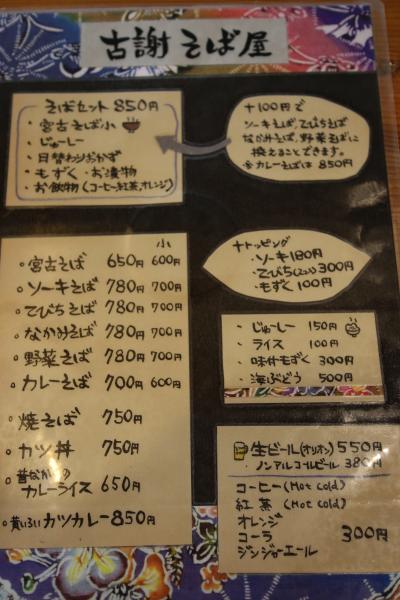 古謝そば屋
そばセット 850円
・宮古そば小
・じゅーしー
・日替わりおかず
・もずく・お漬物
・お飲物(コーヒー紅茶オレンジ)
+100円で
ソーキそば、てびちそば
なかみそば、野菜そばに
換えることできます。
※カレーそばは850円
小
○宮古そば 650円 600円
○ソーキそば 780円 700円
○てびちそば 780円 700円
○なかみそば 780円 700円
○野菜そば 780円 700円
○カレーそば 700円 600円
○焼そば 750円
○カツ丼 750円
○昔ながらの
カレーライス 650円
○黄いろいカツカレー 850円
+トッピング
・ソーキ 180円
・てびち(2コ) 300円
・もずく 100円
・じゅーしー 150円
・ライス 100円
・味付もずく 300円
・海ぶどう 500円
生ビール(オリオン) 550円
・ノンアルコールビール 380円
コーヒー(Hot cold)
紅茶(Hot cold)
オレンジ
コーラ 300円
ジンジャーエール